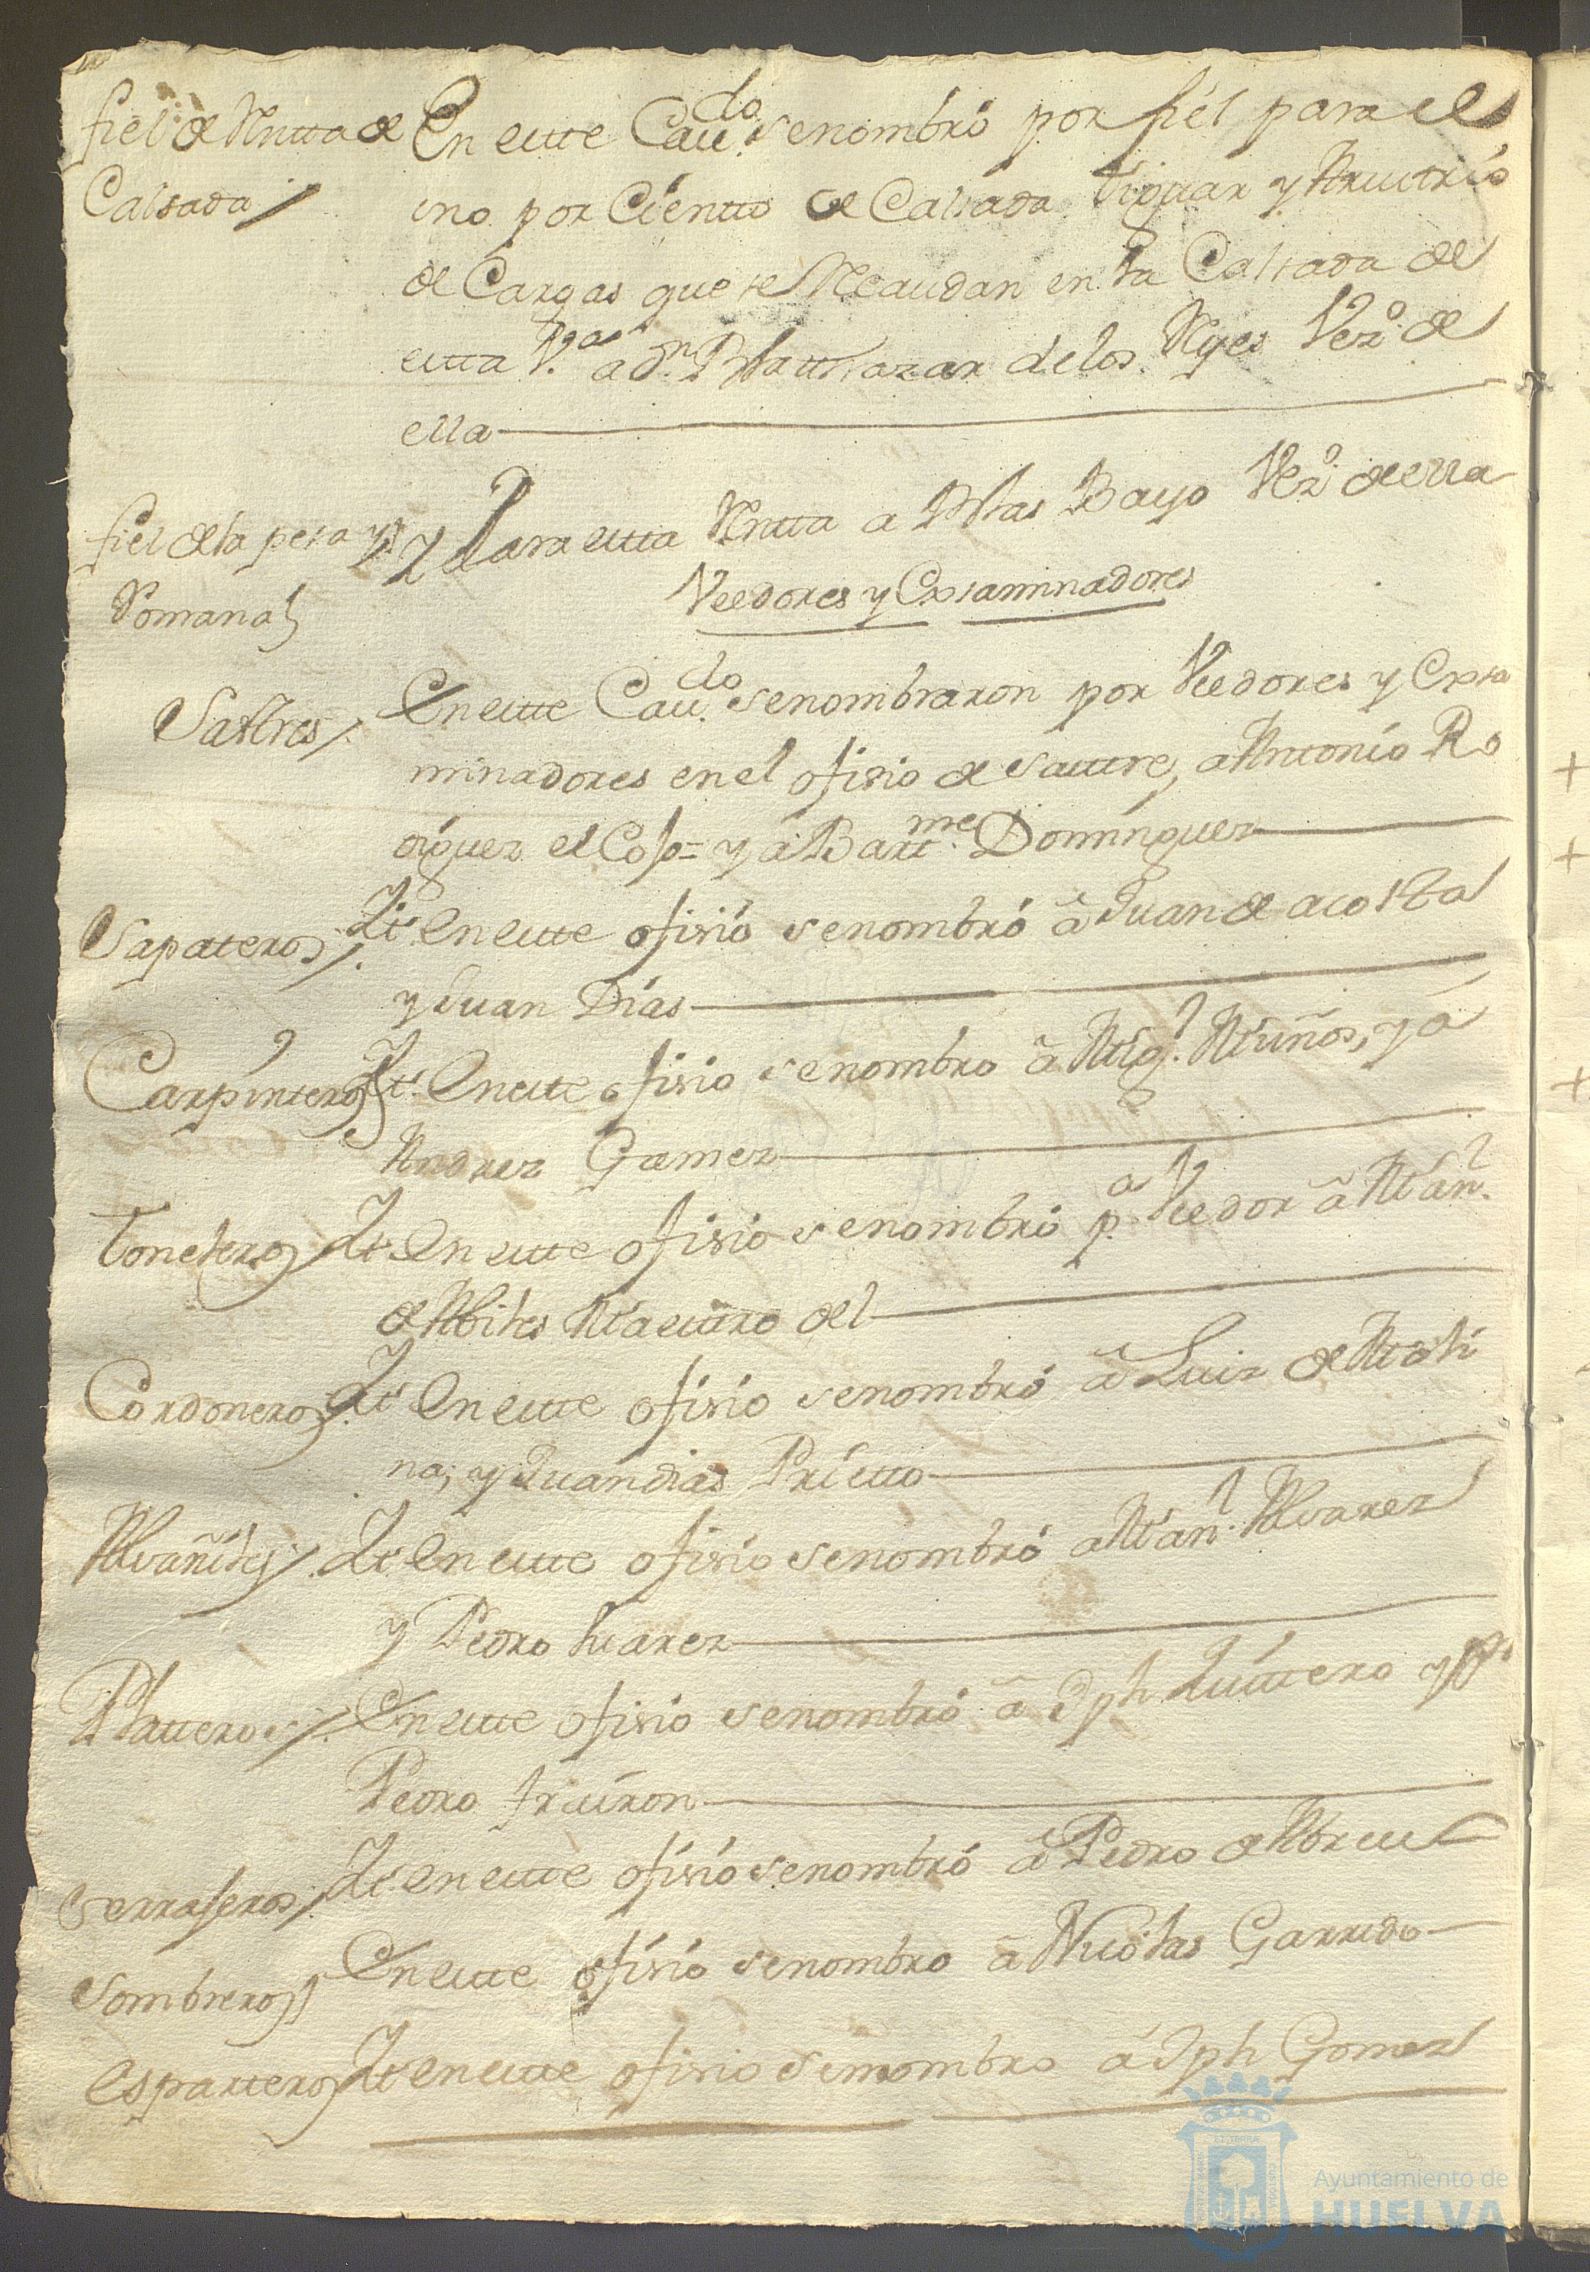 fiel de Rentta de
Calsada
En este Cavdo. se nombró por fiel para el
uno por Ciento de Calsada
de Cargas que se Recaudan en la Calsada de
esta Va. a Dn. Balttasar de los Reyes Vezo. de
ella
fiel de la pesa y
Romana
Y Para esta Rentta a Blas Bayo Vezo. de ella
Veedores y Exsaminadores
Sastres
En este Cavdo. se nombraron por Veedores y Exsa
minadores en el ofisio de sastre, a Antonio Ro
driguez el Cojo= y a Bartme. Dominguez
Sapateros
Yt. En este ofisio se nombró â Juan de acosta
y Juan Días
Carpinteros
Yt. En este ofisio se nombro â Migl. Muños, y a
Andrez Gamez
Toneleros
Yt. En este ofisio se nombró pa. Veedor â Manl.
de Abiles Maestro del
Cordoneros
Yt. En este ofisio se nombró â Luiz de Moli
na, y Juan dias Prietto
Alvañiles
Yt. En este ofisio se nombró a Manl. Alvarez
y Pedro Suarez
Platteros
En este ofisio se nombró â Jph Quintero y
Pedro
Serrajeros
Yt. en este ofisio se nombró â Pedro de Abreu
Sombreros
En este ofisio se nombro â Nicolas Garrido
esparteros
Yt. en este ofisio se nombro á Jph Gomez
Ayuntamiento de
HUELVA